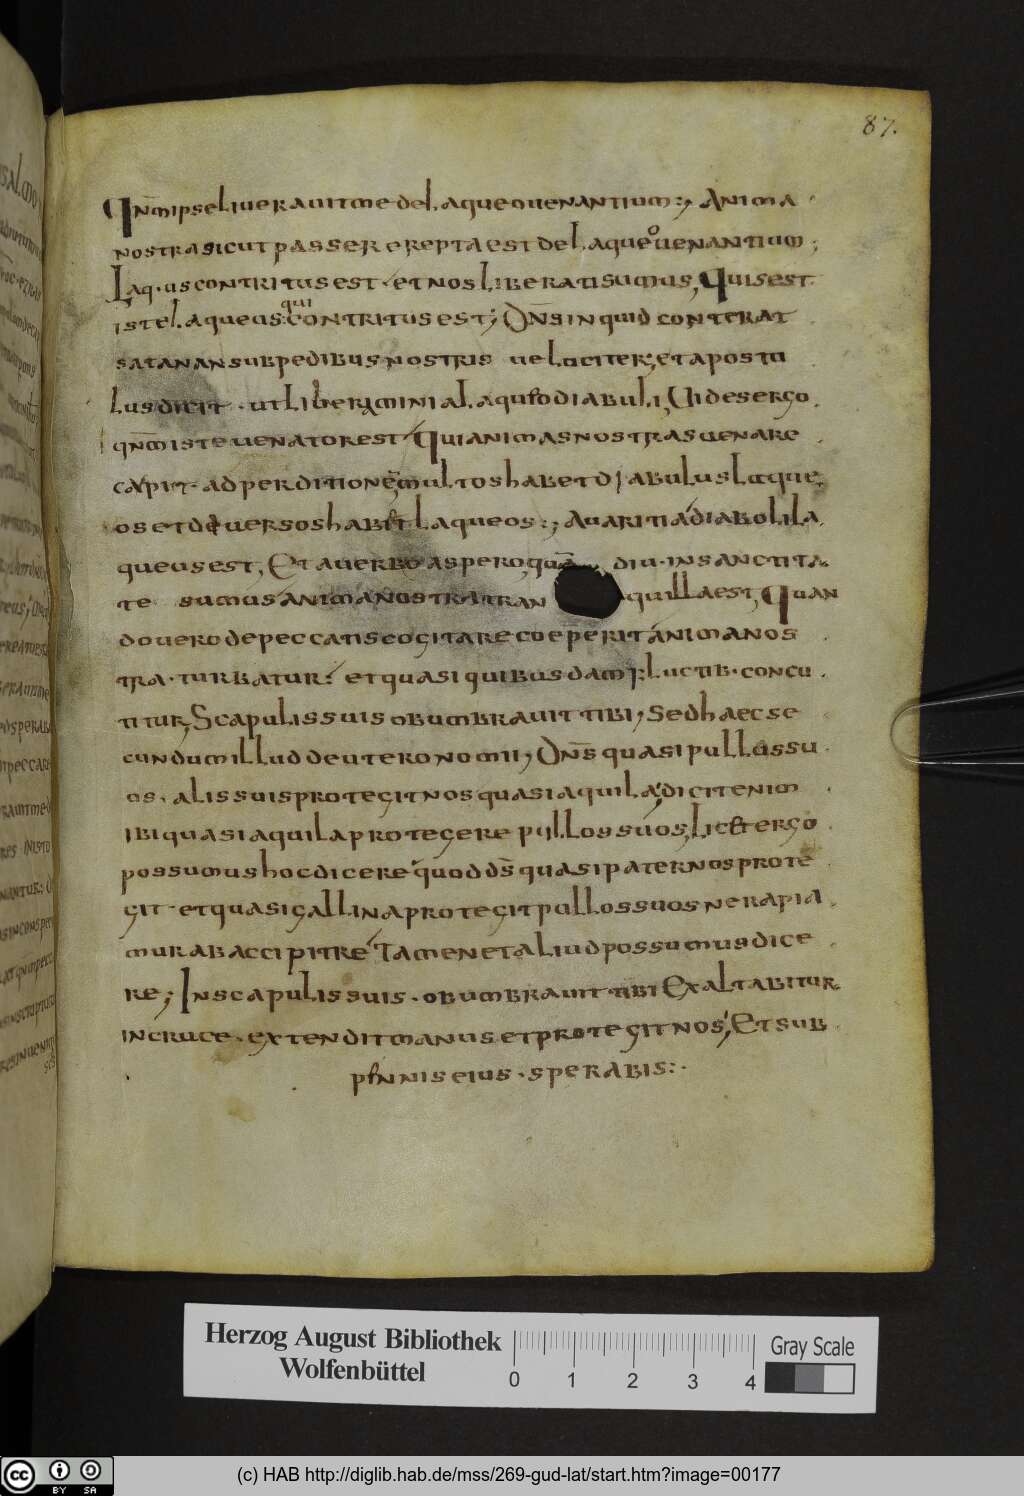 87.
Qnm̄ ipse liuerauit me de laqueo uenantium:, Anima
nostra sicut passer erepta est de laqueo uenantium;
Laq·us contritus est· et nos liberati sumus, Quis est
iste laqueus qui contritus est; Dns̄ inquid conterat
satanan sub pedibus nostris uelociter; et apostu
lus dicit· ut liberamini a laqueo diabuli, Uides ergo
qnm̄ iste uenator est Qui animas nostras uenare
capit· ad perditionē, multos habet diabulus laque,
os et diuersos habet laqueos:, auaritia diaboli la
queus est, Et a uerbo aspero, quā diu· in sanctita
te sumus anima nostra tran quilla est, Quan
do uero de peccatis cogitare coeperit anima nos
tra· turbatur: et quasi quibusdam fluctib· concu
titur, Scapulis suis obumbrauit tibi, Sed haec se
cundum illud deuteronomii, Dns̄ quasi pullos su
os· alis suis protegit nos quasi aquila, dicit enim
ibi quasi aquila protegere pullos suos, licet ergo
possumus hoc dicere quod ds̄ quasi pater nos prote
git· et quasi gallina protegit pullos suos ne rapia
mur ab accipitre Tamen et aliud possumus dice
re; In scapulis suis· obumbrauit tibi Exaltabitur
in cruce· extendit manus et protegit nos, Et sub
pennis eius· sperabis:·
Herzog August Bibliothek
Wolfenbüttel
0 1 2 3 4
Gray Scale
cc BY SA
(c) HAB http://diglib.hab.de/mss/269-gud-lat/start.htm?image=00177